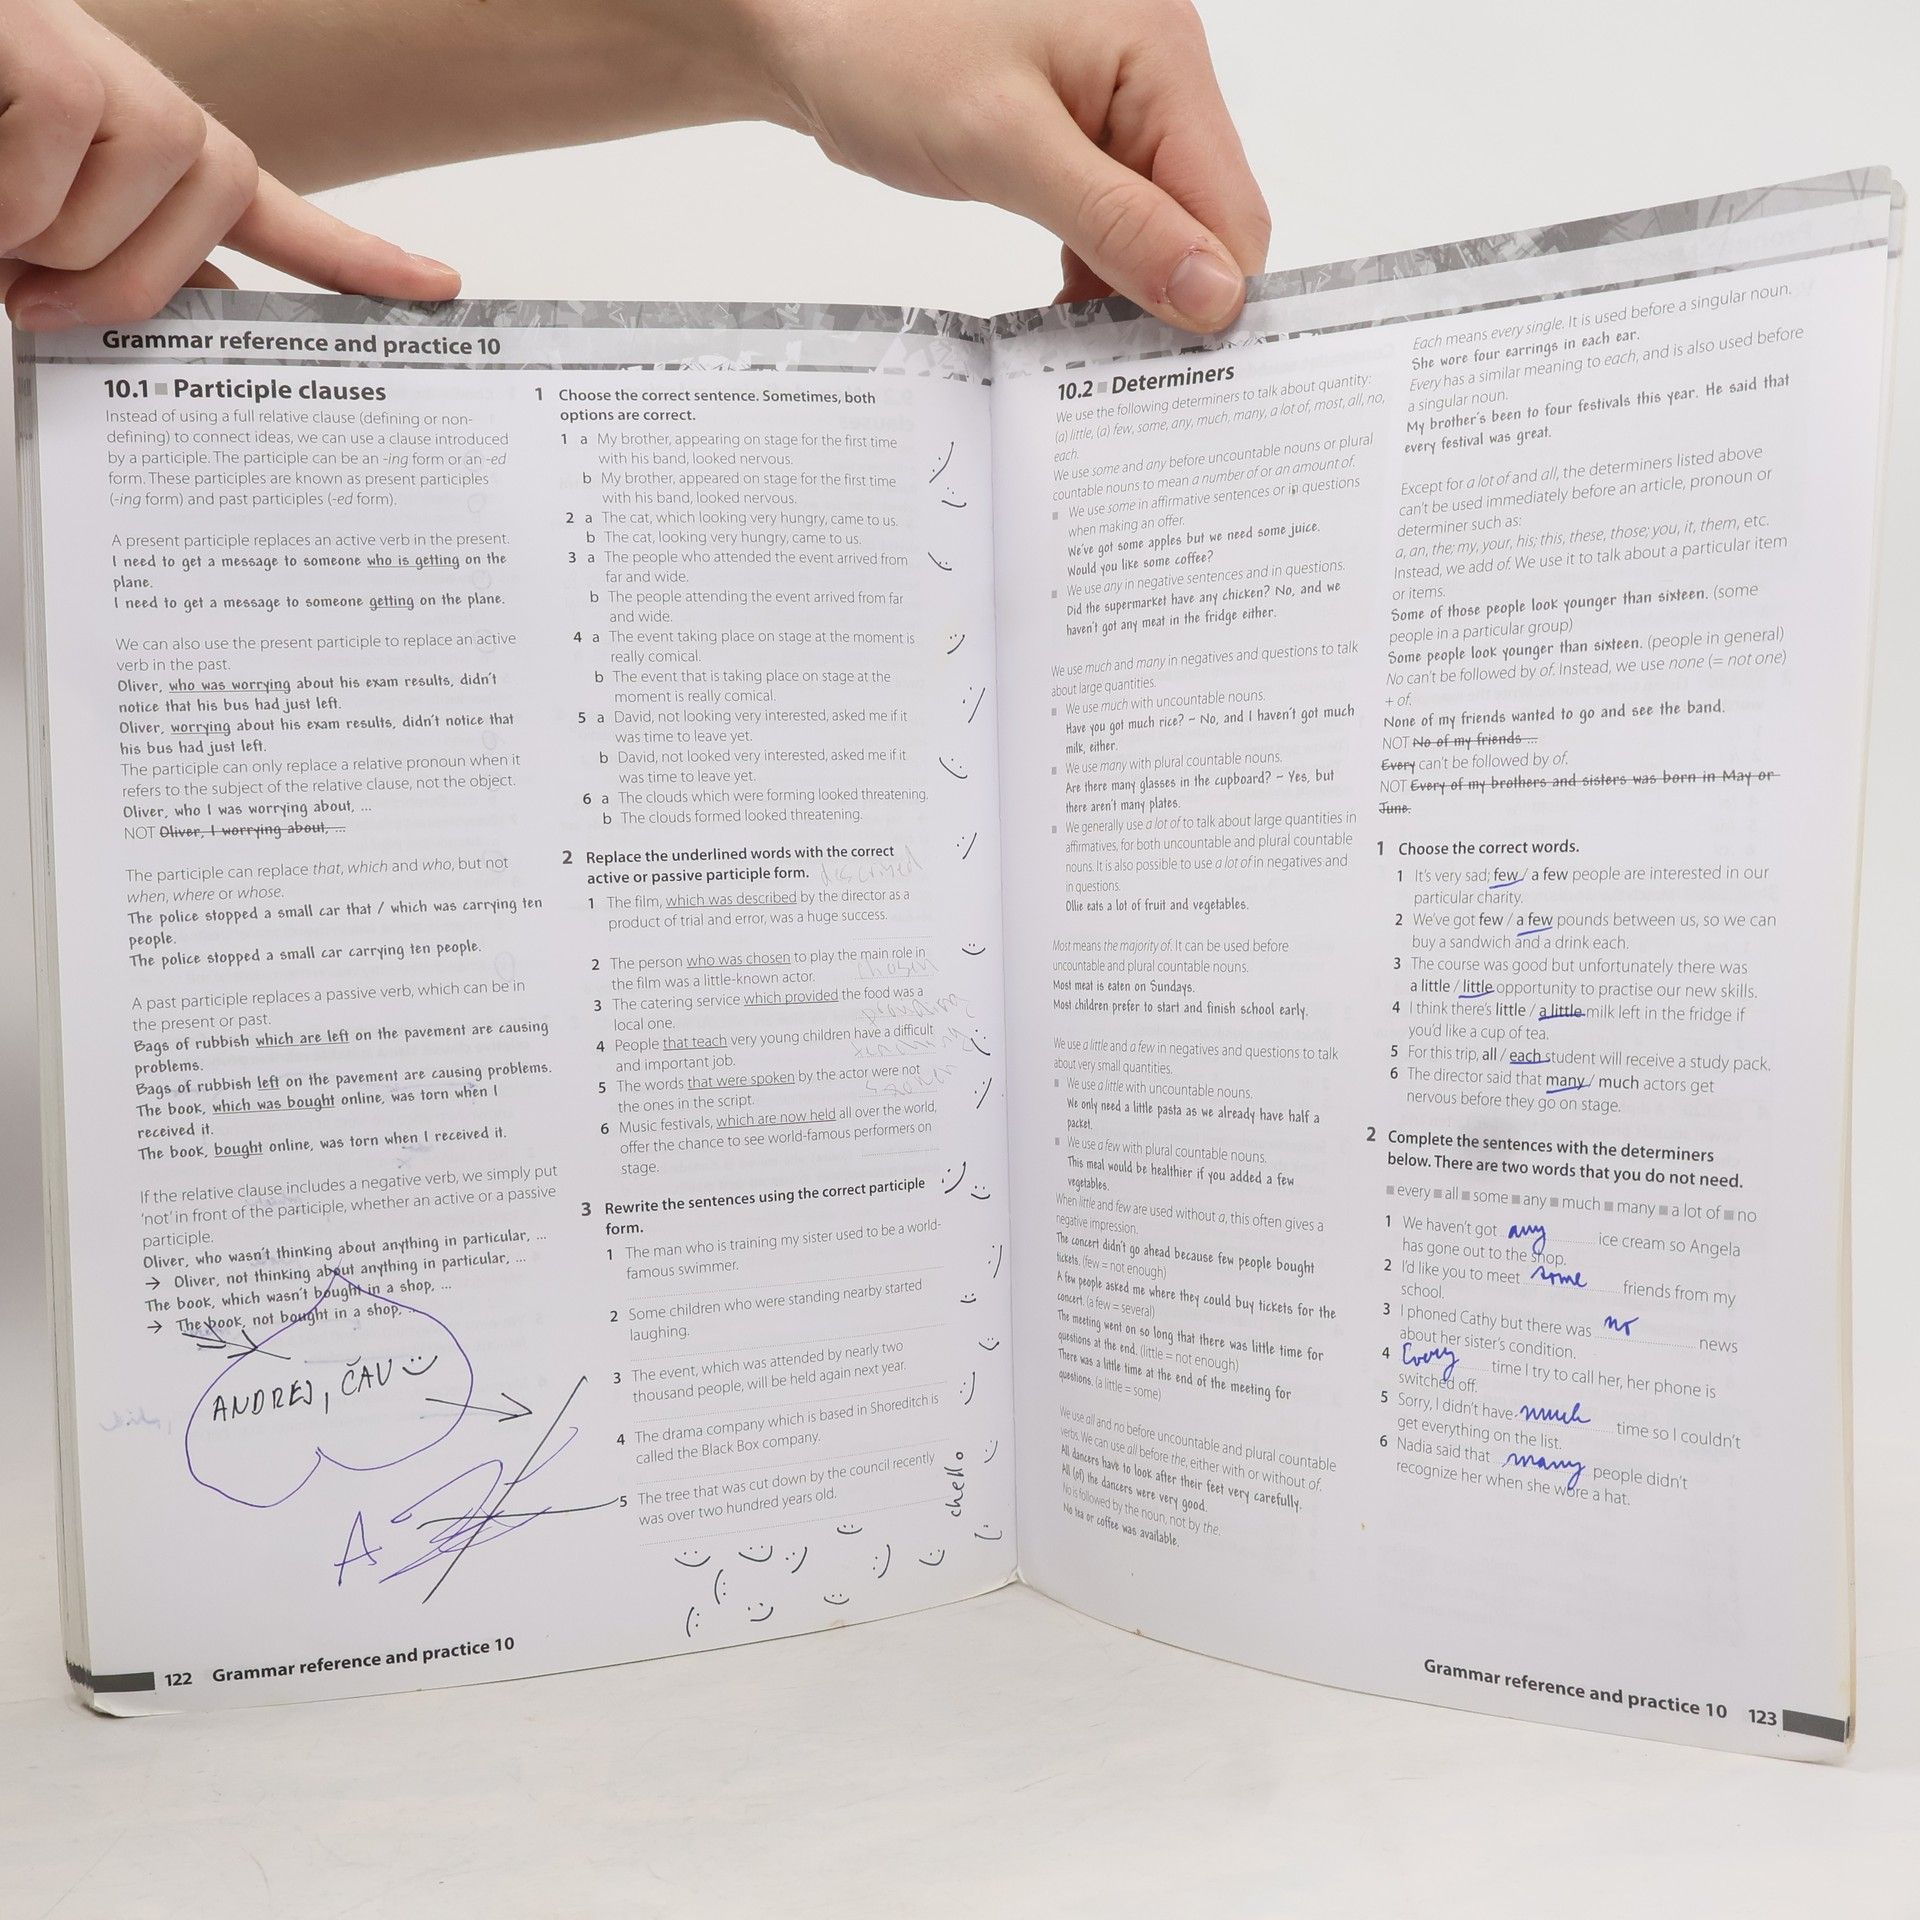 Grammar reference and practice 10
10.1 Participle clauses
Instead of using a full relative clause (defining or non-
defining) to connect ideas, we can use a clause introduced
by a participle. The participle can be an -ing form or an -ed
form. These participles are known as present participles
(-ing form) and past participles (-ed form).
A present participle replaces an active verb in the present.
I need to get a message to someone who is getting on the
plane.
I need to get a message to someone getting on the plane.
We can also use the present participle to replace an active
verb in the past.
Oliver, who was worrying about his exam results, didn't
notice that his bus had just left.
Oliver, worrying about his exam results, didn't notice that
his bus had just left.
The participle can only replace a relative pronoun when it
refers to the subject of the relative clause, not the object.
Oliver, who I was worrying about, ...
NOT Oliver, I worrying about, ...
The participle can replace that, which and who, but not
when, where or whose.
The police stopped a small car that / which was carrying ten
people.
The police stopped a small car carrying ten people.
A past participle replaces a passive verb, which can be in
the present or past.
Bags of rubbish which are left on the pavement are causing
problems.
Bags of rubbish left on the pavement are causing problems.
The book, which was bought online, was torn when I
received it.
The book, bought online, was torn when I received it.
If the relative clause includes a negative verb, we simply put
'not' in front of the participle, whether an active or a passive
participle.
Oliver, who wasn't thinking about anything in particular, ...
→ Oliver, not thinking about anything in particular, ...
The book, which wasn't bought in a shop, ...
→ The book, not bought in a shop, ...
ANDREJ, ČAU :)
A
1 Choose the correct sentence. Sometimes, both
options are correct.
1 a My brother, appearing on stage for the first time
with his band, looked nervous.
b My brother, appeared on stage for the first time
with his band, looked nervous.
2 a The cat, which looking very hungry, came to us.
b The cat, looking very hungry, came to us.
3 a The people who attended the event arrived from
far and wide.
b The people attending the event arrived from far
and wide.
4 a The event taking place on stage at the moment is
really comical.
b The event that is taking place on stage at the
moment is really comical.
5 a David, not looking very interested, asked me if it
was time to leave yet.
b David, not looked very interested, asked me if it
was time to leave yet.
6 a The clouds which were forming looked threatening.
b The clouds formed looked threatening.
2 Replace the underlined words with the correct
active or passive participle form.
1 The film, which was described by the director as a
product of trial and error, was a huge success.
2 The person who was chosen to play the main role in
the film was a little-known actor.
chosen
3 The catering service which provided the food was a
local one.
providing
4 People that teach very young children have a difficult
and important job.
teaching
5 The words that were spoken by the actor were not
the ones in the script.
6 Music festivals, which are now held all over the world,
offer the chance to see world-famous performers on
stage.
3 Rewrite the sentences using the correct participle
form.
1 The man who is training my sister used to be a world-
famous swimmer.
2 Some children who were standing nearby started
laughing.
3 The event, which was attended by nearly two
thousand people, will be held again next year.
4 The drama company which is based in Shoreditch is
called the Black Box company.
5 The tree that was cut down by the council recently
was over two hundred years old.
chello
122 Grammar reference and practice 10
10.2 Determiners
We use the following determiners to talk about quantity:
(a) little, (a) few, some, any, much, many, a lot of, most, all, no,
each.
We use some and any before uncountable nouns or plural
countable nouns to mean a number of or an amount of.
We use some in affirmative sentences or in questions
when making an offer.
We've got some apples but we need some juice.
Would you like some coffee?
We use any in negative sentences and in questions.
Did the supermarket have any chicken? No, and we
haven't got any meat in the fridge either.
We use much and many in negatives and questions to talk
about large quantities.
We use much with uncountable nouns.
Have you got much rice? ~ No, and I haven't got much
milk, either.
We use many with plural countable nouns.
Are there many glasses in the cupboard? ~ Yes, but
there aren't many plates.
We generally use a lot of to talk about large quantities in
affirmatives, for both uncountable and plural countable
nouns. It is also possible to use a lot of in negatives and
in questions.
Ollie eats a lot of fruit and vegetables.
Most means the majority of. It can be used before
uncountable and plural countable nouns.
Most meat is eaten on Sundays.
Most children prefer to start and finish school early.
We use a little and a few in negatives and questions to talk
about very small quantities.
We use a little with uncountable nouns.
We only need a little pasta as we already have half a
packet.
We use a few with plural countable nouns.
This meal would be healthier if you added a few
vegetables.
When little and few are used without a, this often gives a
negative impression.
The concert didn't go ahead because few people bought
tickets. (few = not enough)
A few people asked me where they could buy tickets for the
concert. (a few = several)
The meeting went on so long that there was little time for
questions at the end. (little = not enough)
There was a little time at the end of the meeting for
questions. (a little = some)
We use all and no before uncountable and plural countable
verbs. We can use all before the, either with or without of.
All dancers have to look after their feet very carefully.
All (of) the dancers were very good.
No is followed by the noun, not by the.
No tea or coffee was available.
Each means every single. It is used before a singular noun.
She wore four earrings in each ear.
Every has a similar meaning to each, and is also used before
a singular noun.
My brother's been to four festivals this year. He said that
every festival was great.
Except for a lot of and all, the determiners listed above
can't be used immediately before an article, pronoun or
determiner such as:
a, an, the; my, your, his; this, these, those; you, it, them, etc.
Instead, we add of. We use it to talk about a particular item
or items.
Some of those people look younger than sixteen. (some
people in a particular group)
Some people look younger than sixteen. (people in general)
No can't be followed by of. Instead, we use none (= not one)
+ of.
None of my friends wanted to go and see the band.
NOT No of my friends ...
Every can't be followed by of.
NOT Every of my brothers and sisters was born in May or
June.
1 Choose the correct words.
1 It's very sad; few / a few people are interested in our
particular charity.
2 We've got few / a few pounds between us, so we can
buy a sandwich and a drink each.
3 The course was good but unfortunately there was
a little / little opportunity to practise our new skills.
4 I think there's little / a little milk left in the fridge if
you'd like a cup of tea.
5 For this trip, all / each student will receive a study pack.
6 The director said that many / much actors get
nervous before they go on stage.
2 Complete the sentences with the determiners
below. There are two words that you do not need.
every all some any much many a lot of no
1 We haven't got any ice cream so Angela
has gone out to the shop.
2 I'd like you to meet some friends from my
school.
3 I phoned Cathy but there was no news
about her sister's condition.
4 Every time I try to call her, her phone is
switched off.
5 Sorry, I didn't have much time so I couldn't
get everything on the list.
6 Nadia said that many people didn't
recognize her when she wore a hat.
Grammar reference and practice 10 123